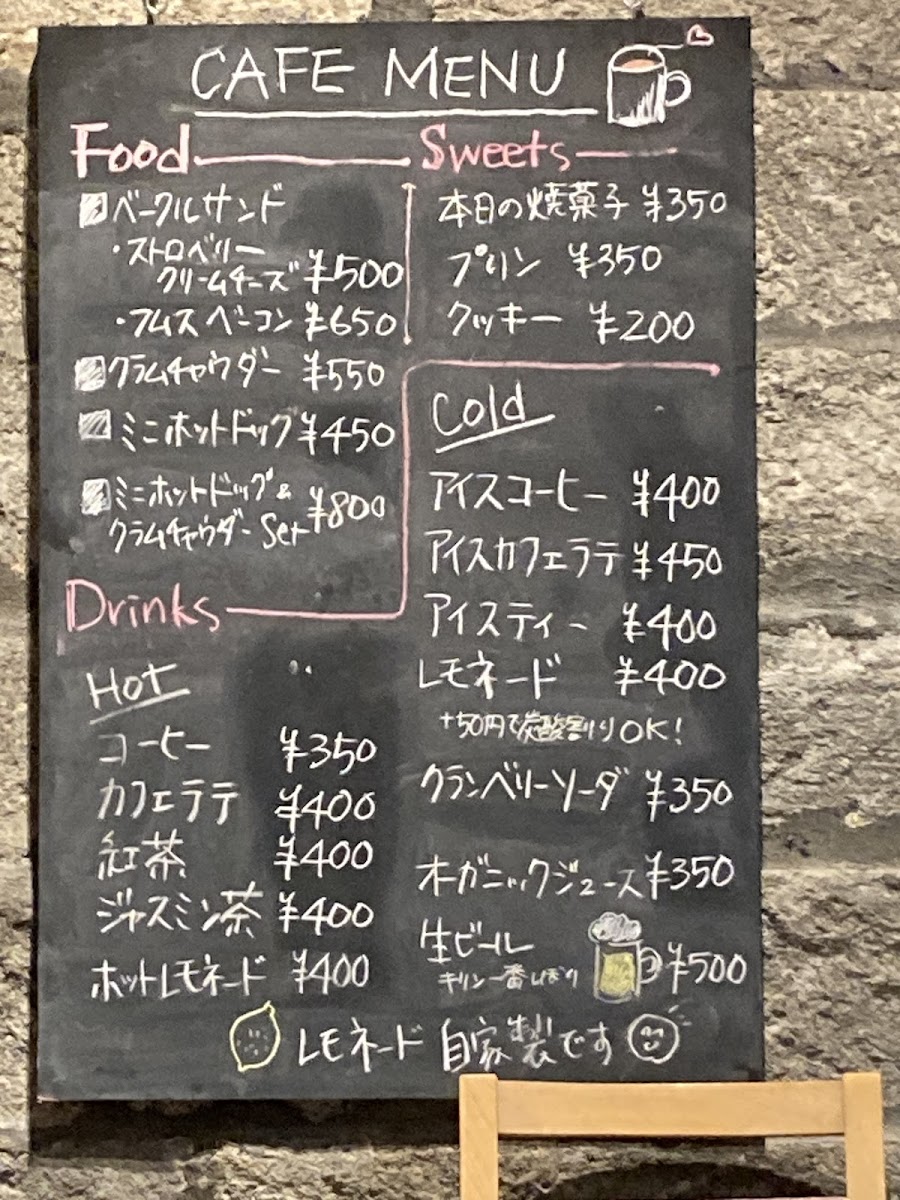 CAFE MENU
Food
ベーグルサンド
・ストロベリー
クリームチーズ ¥500
・フムスベーコン ¥650
クラムチャウダー ¥550
ミニホットドッグ ¥450
ミニホットドッグ&
クラムチャウダー Set ¥800
Sweets
本日の焼菓子 ¥350
プリン ¥350
クッキー ¥200
Drinks
Hot
コーヒー ¥350
カフェラテ ¥400
紅茶 ¥400
ジャスミン茶 ¥400
ホットレモネード ¥400
Cold
アイスコーヒー ¥400
アイスカフェラテ ¥450
アイスティー ¥400
レモネード ¥400
+50円で炭酸割りOK!
クランベリーソーダ ¥350
オーガニックジュース ¥350
生ビール
キリン一番しぼり ¥500
レモネード 自家製です